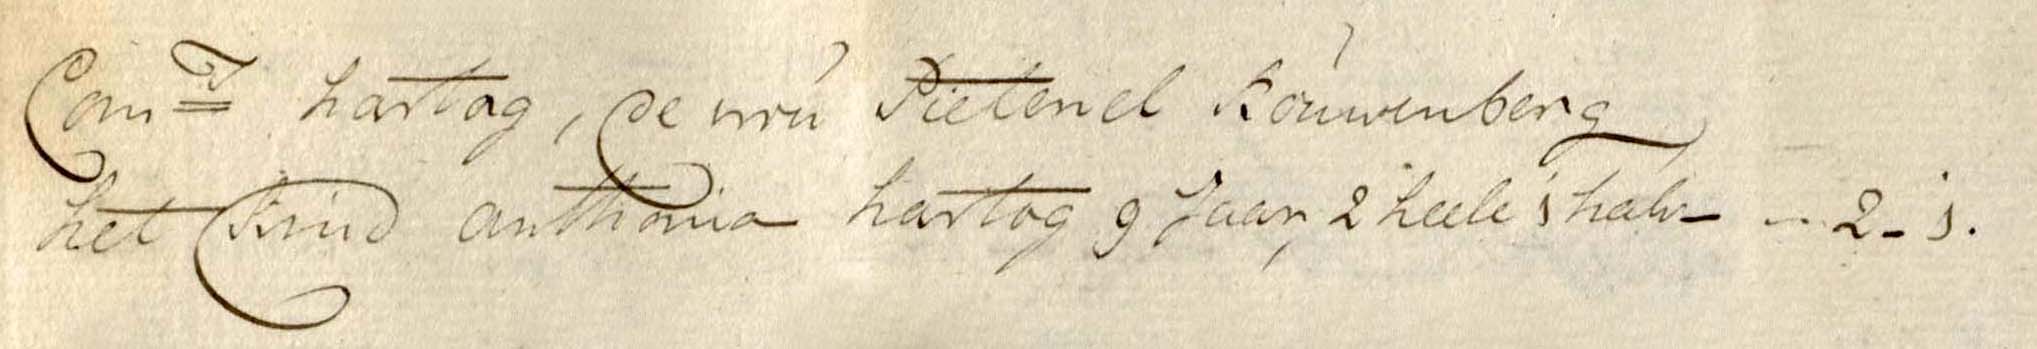 Corn= hartog, de vroú Pieternel Koúwenberg
het kind anthonia hartog 9 Jaar, 2 heele 1 halv - 2 - 1.